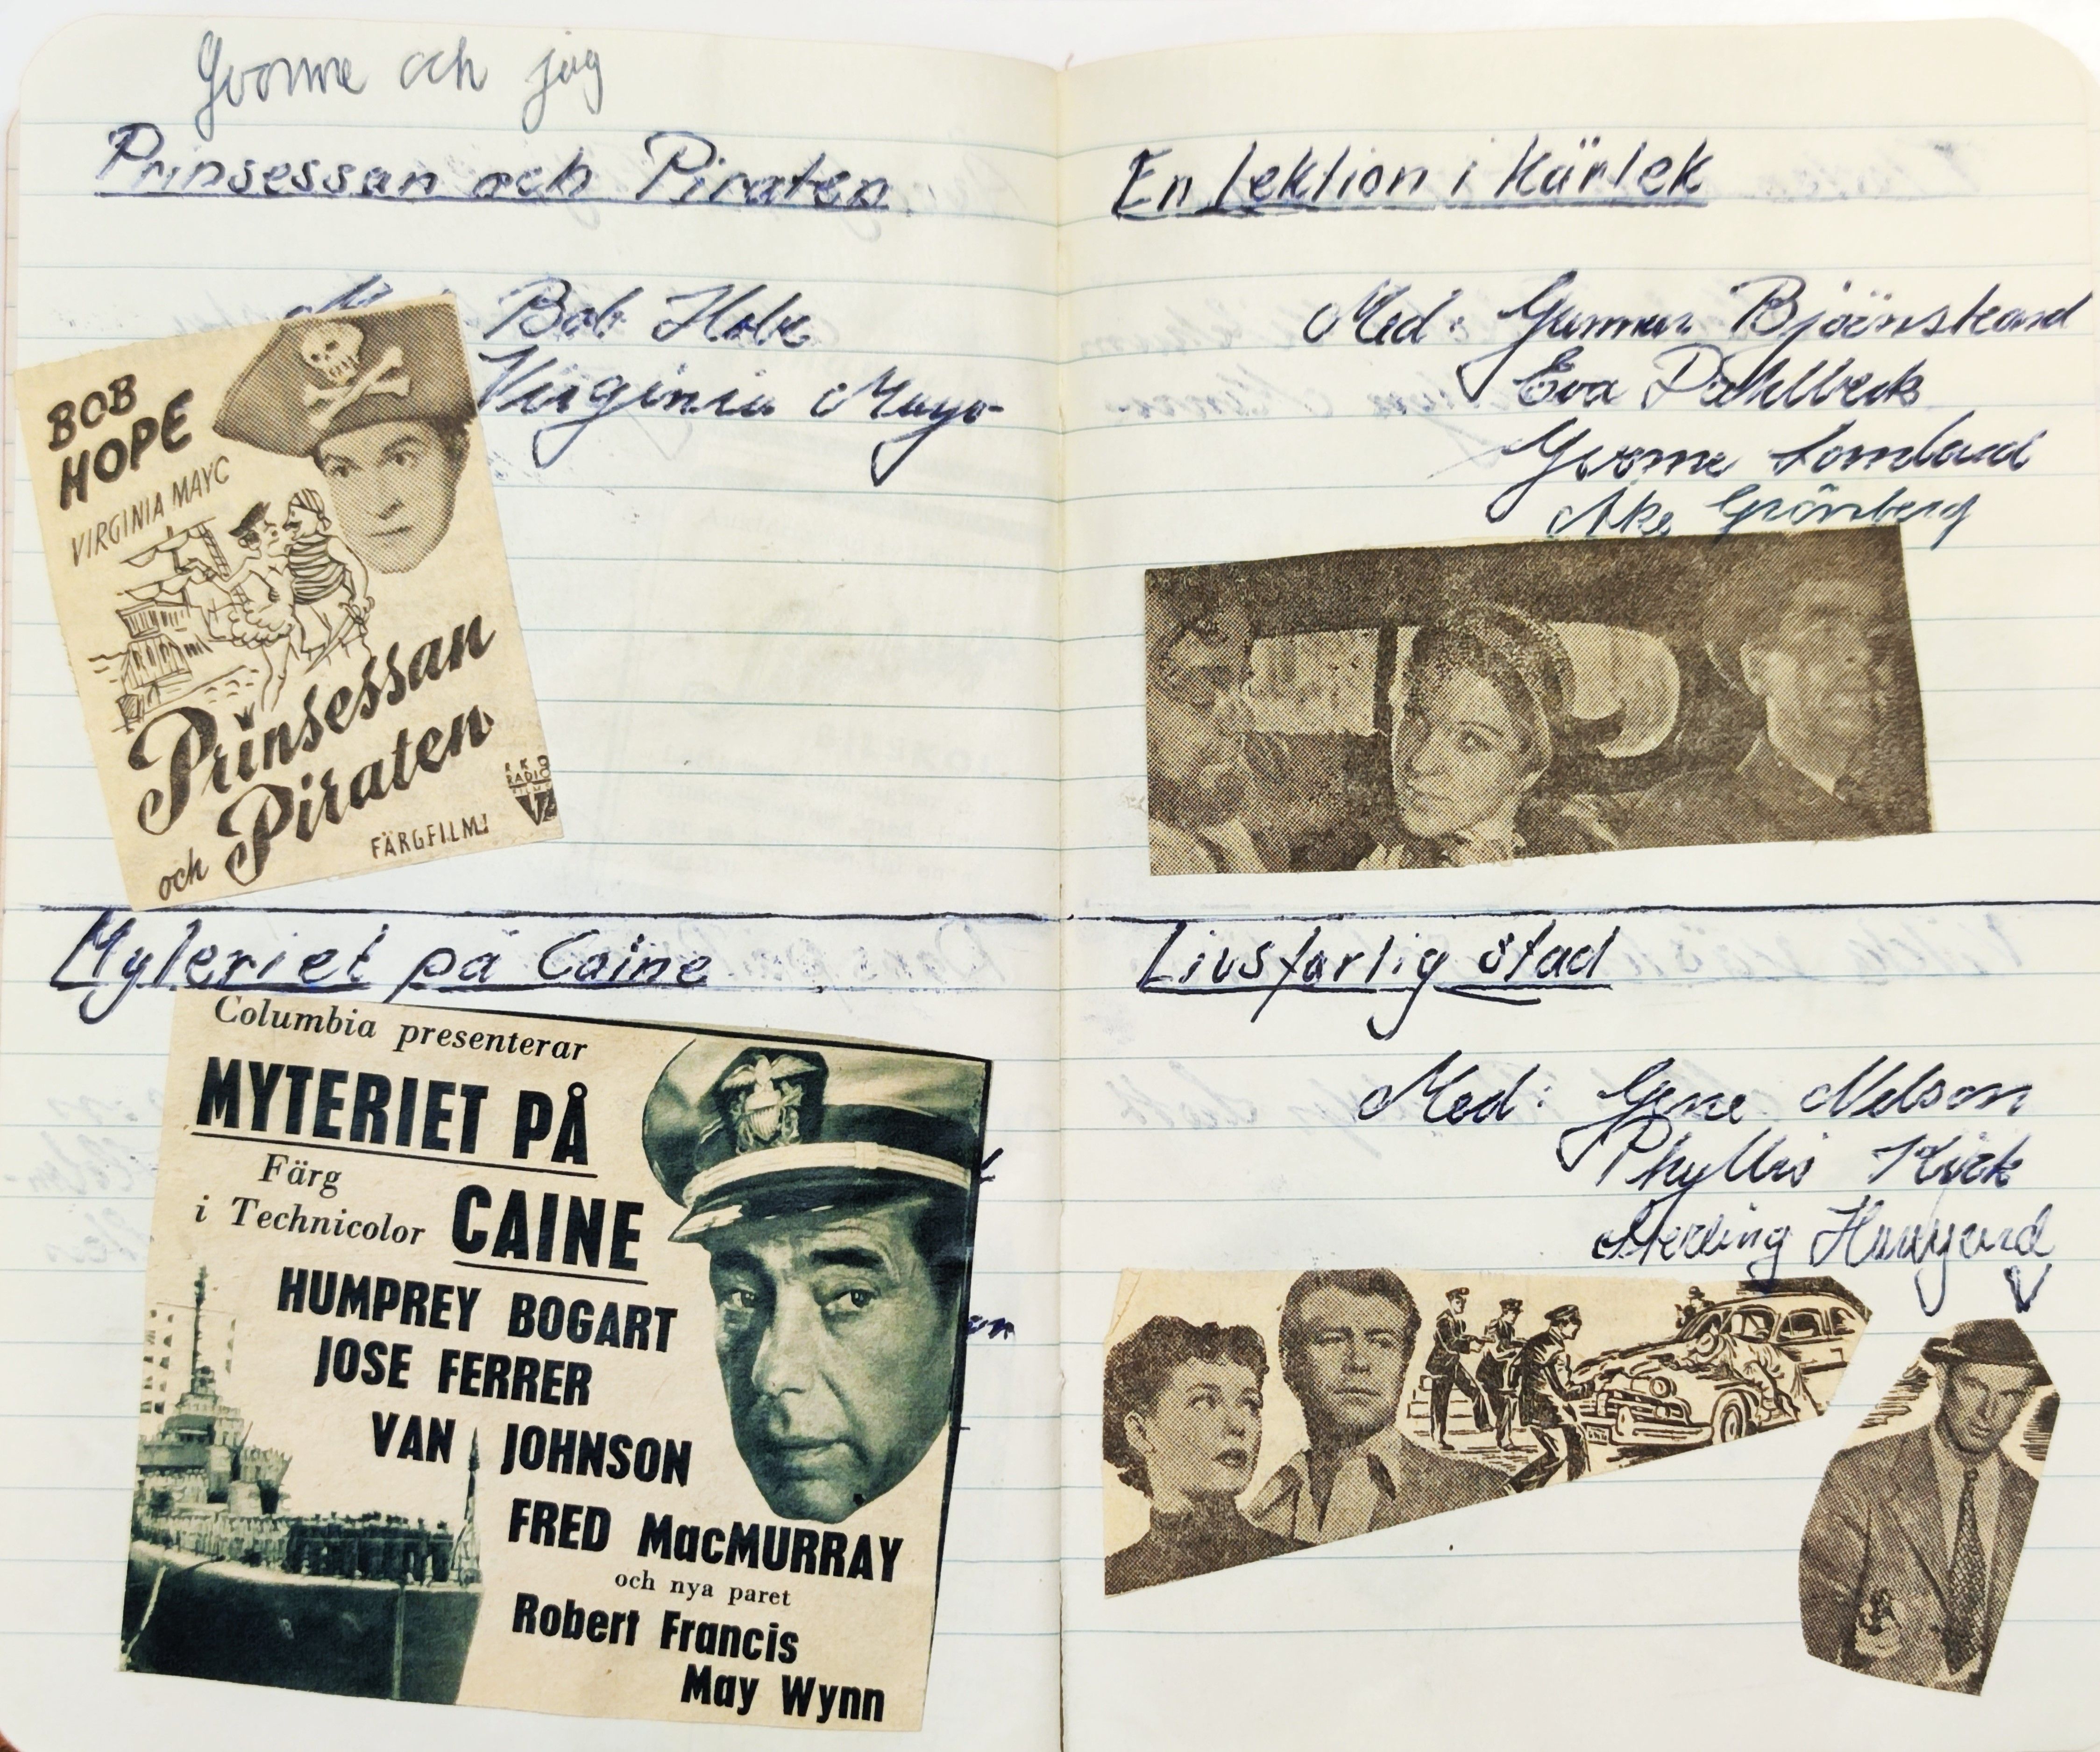 Yvonne och jag
Prinsessan och Piraten
Bob Hope
Virginia Mayo
BOB
HOPE
VIRGINIA MAYO
Prinsessan
och Piraten
RKO
RADIO
FÄRGFILM!
Myteriet på Caine
Columbia presenterar
MYTERIET PÅ
Färg
i Technicolor CAINE
HUMPREY BOGART
JOSE FERRER
VAN JOHNSON
FRED MacMURRAY
och nya paret
Robert Francis
May Wynn
En lektion i Kärlek
Med: Gunnar Björnstrand
Eva Dahlbeck
Yvonne Lombard
Åke Grönberg
Livsfarlig stad
Med: Gene Nelson
Phyllis Kirk
Sterling Hayward